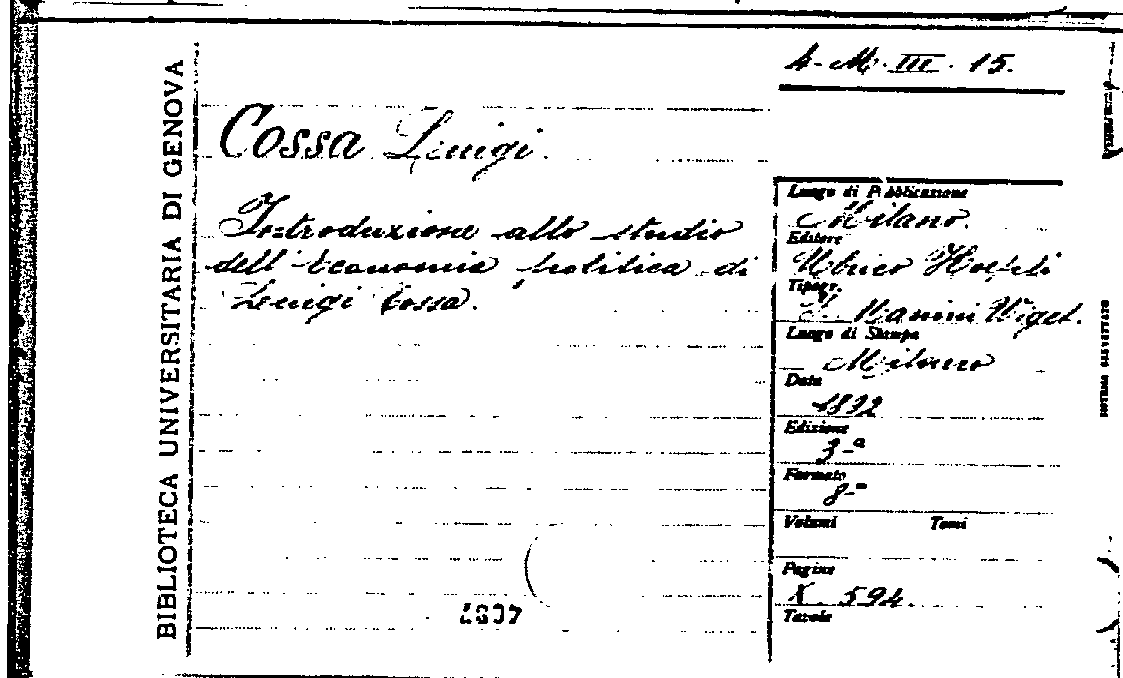 4-M. III. 15.
BIBLIOTECA UNIVERSITARIA DI GENOVA
Cossa Luigi.
Introduzione allo studio
dell'Economia politica di
Luigi Cossa.
Luogo di Pubblicazione
Milano.
Editore
Ulrico Hoepli
Tipogr.
Manini Wiget.
Luogo di Stampa
Milano
Data
1892
Edizione
3-a
Formato
8-°
Volumi Tomi
Pagine
X. 594.
Tavole